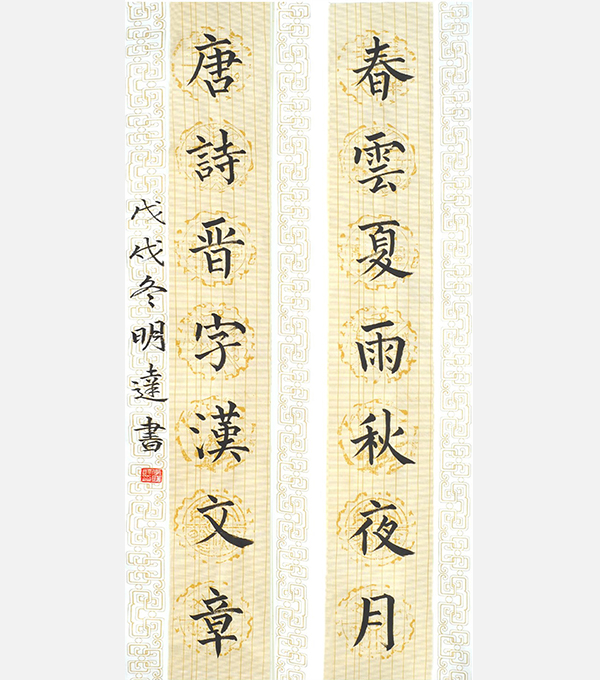 春雲夏雨秋夜月
唐詩晋字漢文章
戊戌冬明達書